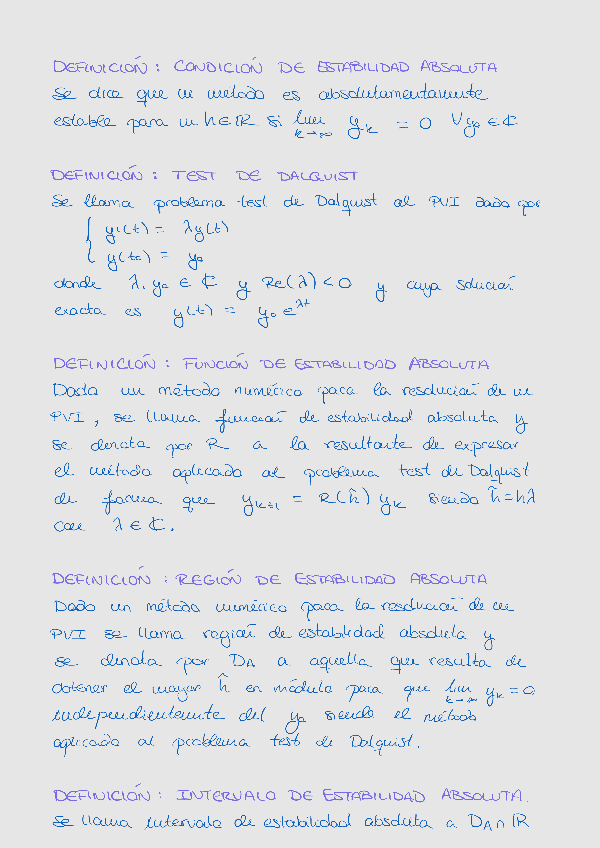 DEFINICIÓN: CONDICIÓN DE ESTABILIDAD ABSOLUTA
Se dice que un método es absolutamentamente
estable para un h∈ℝ si lim k→∞ yₖ = 0 ∀y₀ ∈ ℂ
DEFINICIÓN: TEST DE DALQUIST
Se llama problema test de Dalquist al PVI dado por
{ y'(t) = λy(t)
{ y(t₀) = y₀
donde λ, y₀ ∈ ℂ y Re(λ) < 0 y cuya solución
exacta es y(t) = y₀ e^λt
DEFINICIÓN: FUNCIÓN DE ESTABILIDAD ABSOLUTA
Dado un método numérico para la resolución de un
PVI, se llama función de estabilidad absoluta y
se denota por R a la resultante de expresar
el método aplicado al problema test de Dalquist
de forma que yₖ₊₁ = R(ĥ) yₖ siendo ĥ = hλ
con λ ∈ ℂ.
DEFINICIÓN: REGIÓN DE ESTABILIDAD ABSOLUTA
Dado un método numérico para la resolución de un
PVI se llama región de estabilidad absoluta y
se denota por D_A a aquella que resulta de
obtener el mayor ĥ en módulo para que lim k→∞ yₖ = 0
independientemente del y₀ siendo el método
aplicado al problema test de Dalquist.
DEFINICIÓN: INTERVALO DE ESTABILIDAD ABSOLUTA.
Se llama intervalo de estabilidad absoluta a D_A ∩ ℝ